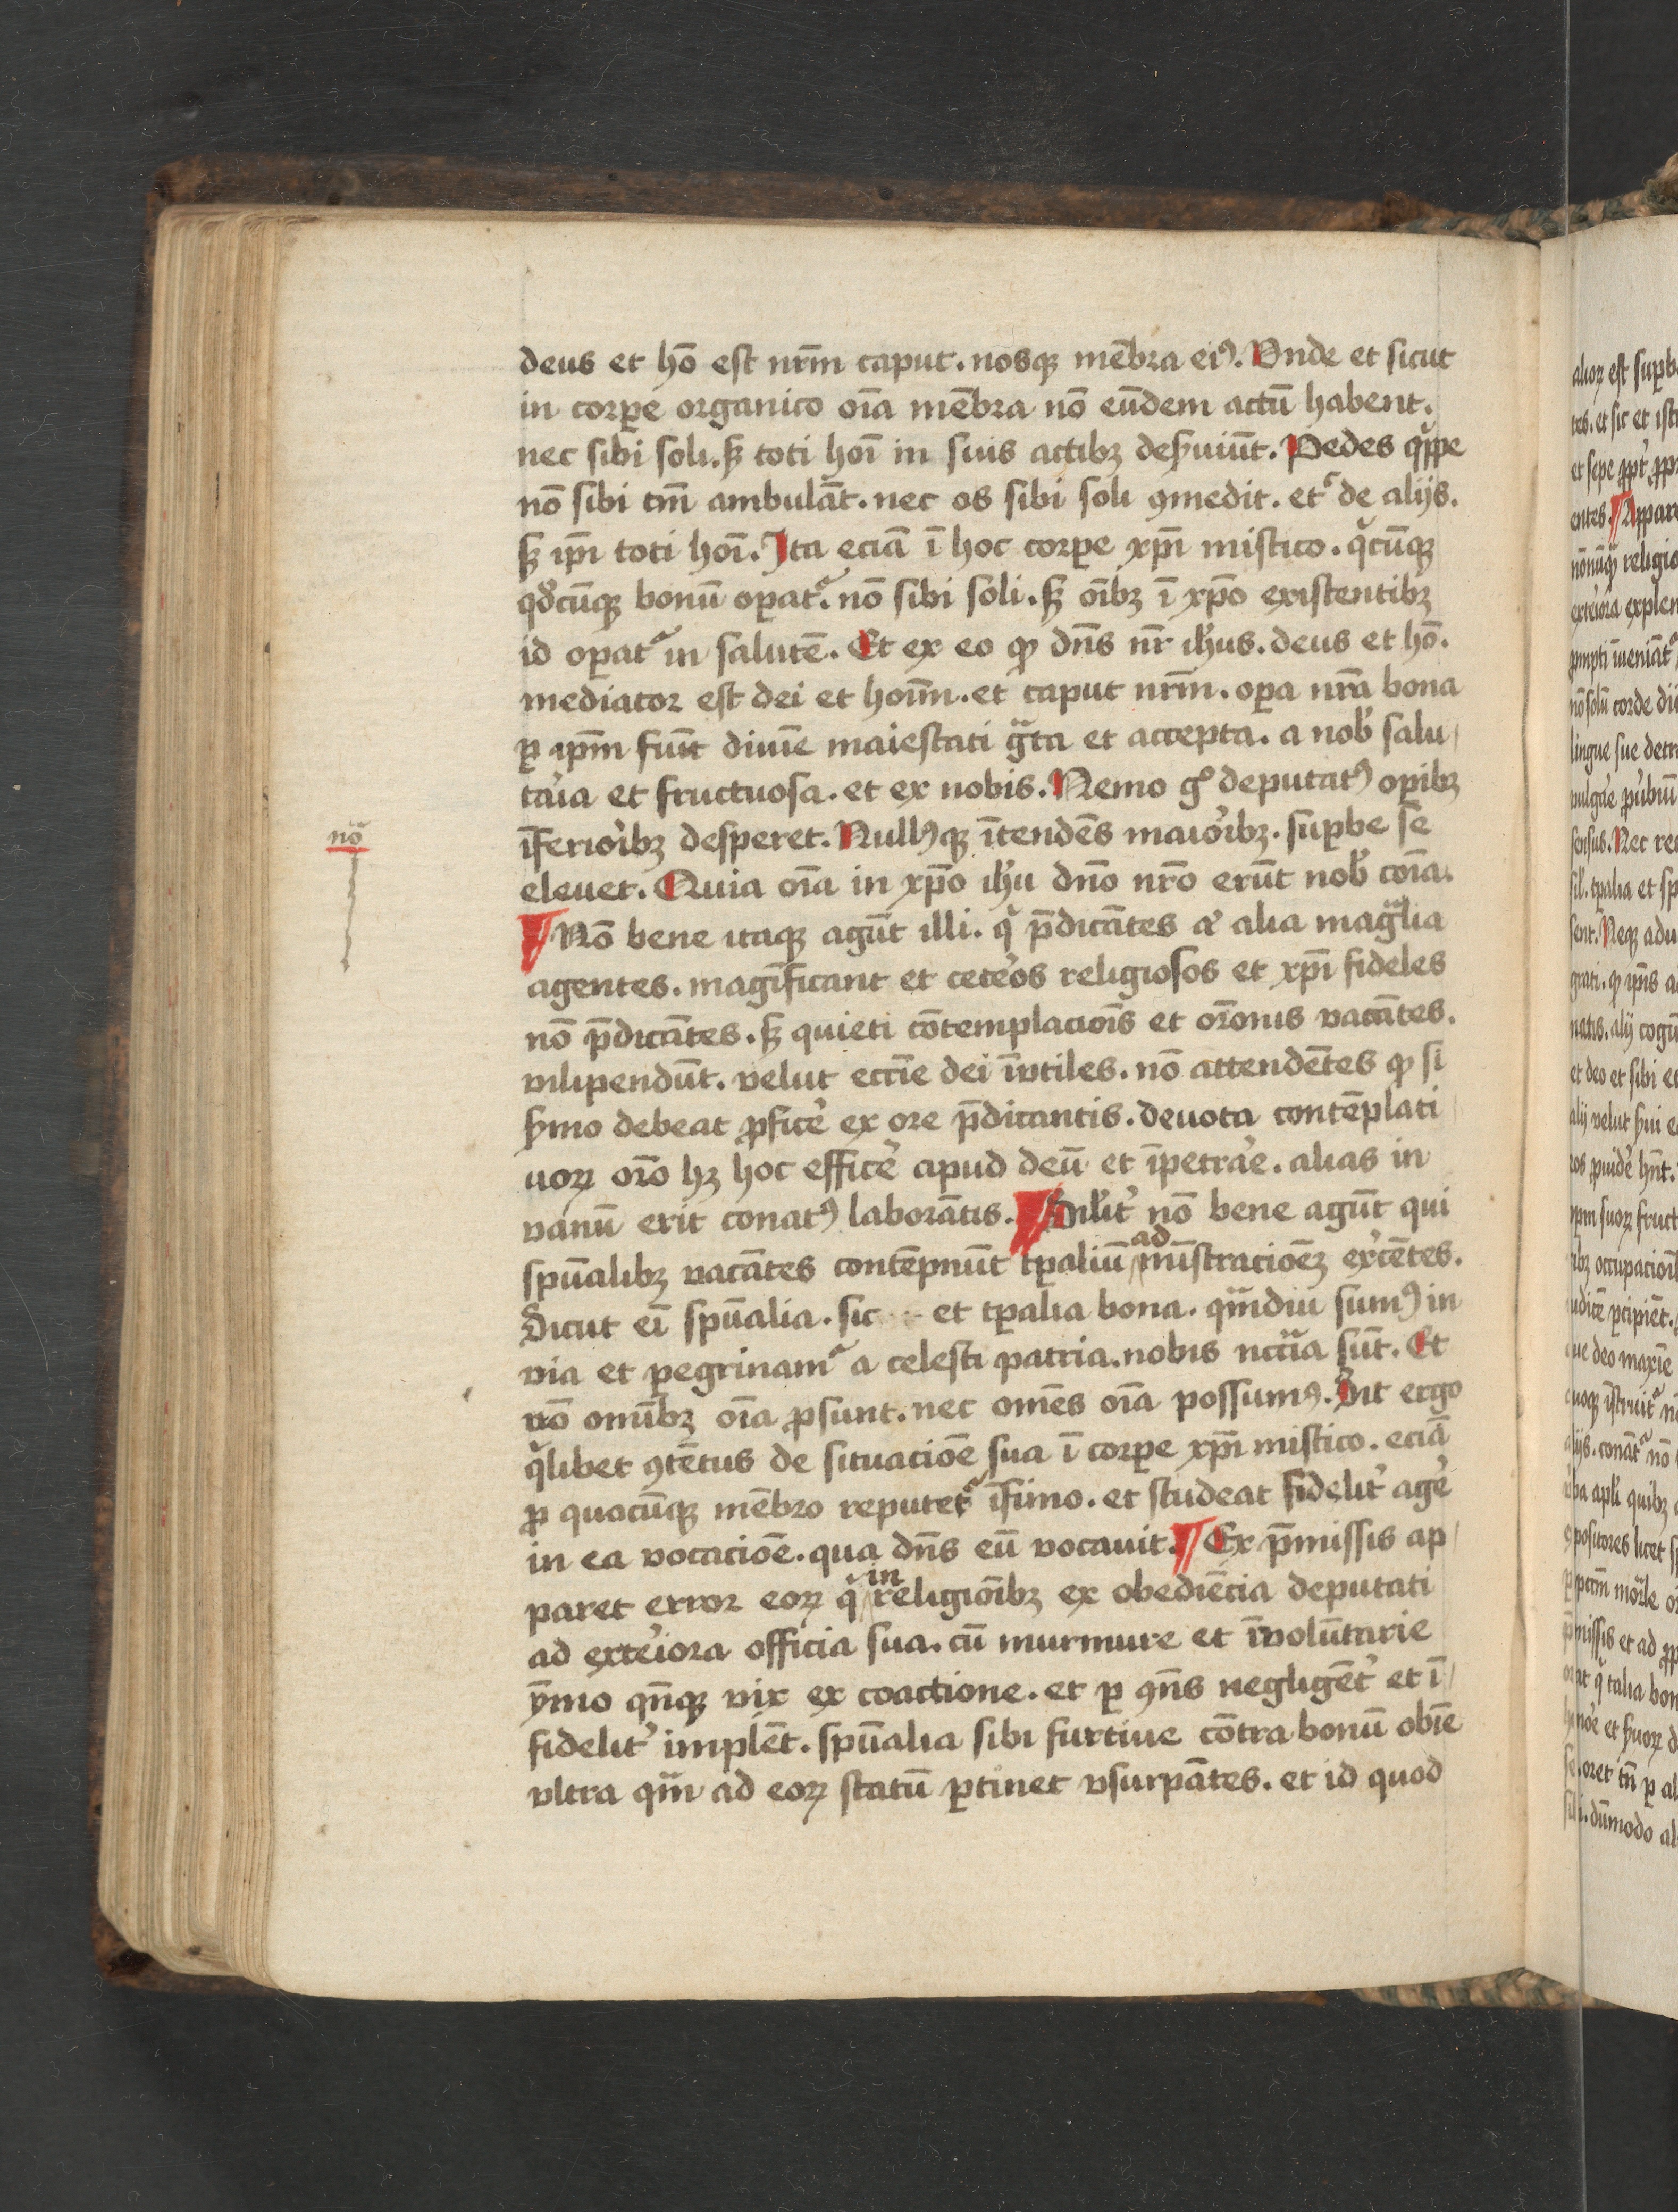 deus et hō est nrm̄ caput. nosqꝫ mēbra eiꝰ. Vnde et sicut
in corꝑe organico oīa mēbra nō eūdem actū habent.
nec sibi soli. sꝫ toti hoī in suis actibꝫ deẜuiūt. Pedes qͥppe
nō sibi tm̄ ambulāt. nec os sibi soli ꝯmedit. etᷓ de alijs.
sꝫ ip̄i toti hoī. Ita eciā ī hoc corꝑe xp̄i mistico. qͥcūqꝫ
qᷓcūqꝫ bonū oꝑatᷣ. nō sibi soli. sꝫ oībꝫ ī xp̄o existentibꝫ
id oꝑatᷣ in salutē. Et ex eo ꝙ dn̄s nr̄ ih̄us. deus et hō.
mediator est dei et hoīm. et caput nrm̄. oꝑa nrā bona
ꝑ ip̄m fiūt diuīe maiestati gͣta et accepta. a nobꝭ salu
tar̓ia et fructuosa. et ex nobis. Nemo gͦ deputatꝰ oꝑibꝫ
īferior̓ibꝫ desperet. Nullꝰqꝫ ītendēs maior̓ibꝫ. suꝑbe se
eleuet. Quia oīa in xp̄o ih̄u dn̄o nr̄o erūt nobꝭ coīa.
nōͣ
¶ Nō bene itaqꝫ agūt illi. qͥ p̄dicātes et alia magͣlia
agentes. magīficant et ceter̓os religiosos et xp̄i fideles
nō p̄dicātes. sꝫ quieti cōtemplacioīs et orōnis vacātes.
vilipendūt. velut eccīe dei īvtiles. nō attendētes ꝙ si
ẜmo debeat ꝓficer̓ ex ore p̄dicantis. deuota contēplati
uoꝝ orō hꝫ hoc efficer̓ apud deū et īpetrar̓e. alias in
vanū erit conatꝰ laborātis. ¶ Sil̓it̓ nō bene agūt qui
spūalibꝫ vacātes contēpnūt tꝑaliū ad mīstracioēꝫ exer̓cētes.
Sicut eī spūalia. sic et tꝑalia bona. qͣmdiu sumꝰ in
via et ꝑegrinamᷣ a celesti patria. nobis nccͣia sūt. Et
nō omībꝫ oīa ꝓsunt. nec omēs oīa possumꝰ. Sit ergo
qͥlibet ꝯtētus de situacioē sua ī corꝑe xp̄i mistico. eciā
ꝓ quacūqꝫ mēbro reputetᷣ īfimo. et studeat fidelit̓ ager̓
in ea vocacioē. qua dn̄s eū vocauit. ¶ Ex p̄missis ap
paret error eoꝝ qͥ in religioībꝫ ex obediēcia deputati
ad exter̓iora officia sua. cū murmure et īvolūtarie
ȳmo qn̄qꝫ vix ex coactione. et ꝑ ꝯn̄s negligēt̓ et ī
fidelit̓ implēt. spūalia sibi furtiue cōtra bonū obīe
vltra qͣm ad eoꝝ statū ꝑtinet vsurpātes. et id quod